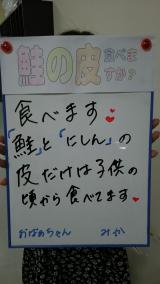 鮭の皮 食べま
すか?
食べます
「鮭」と「にしん」の
皮だけは子供の
頃から食べてます
おばあちゃん みか